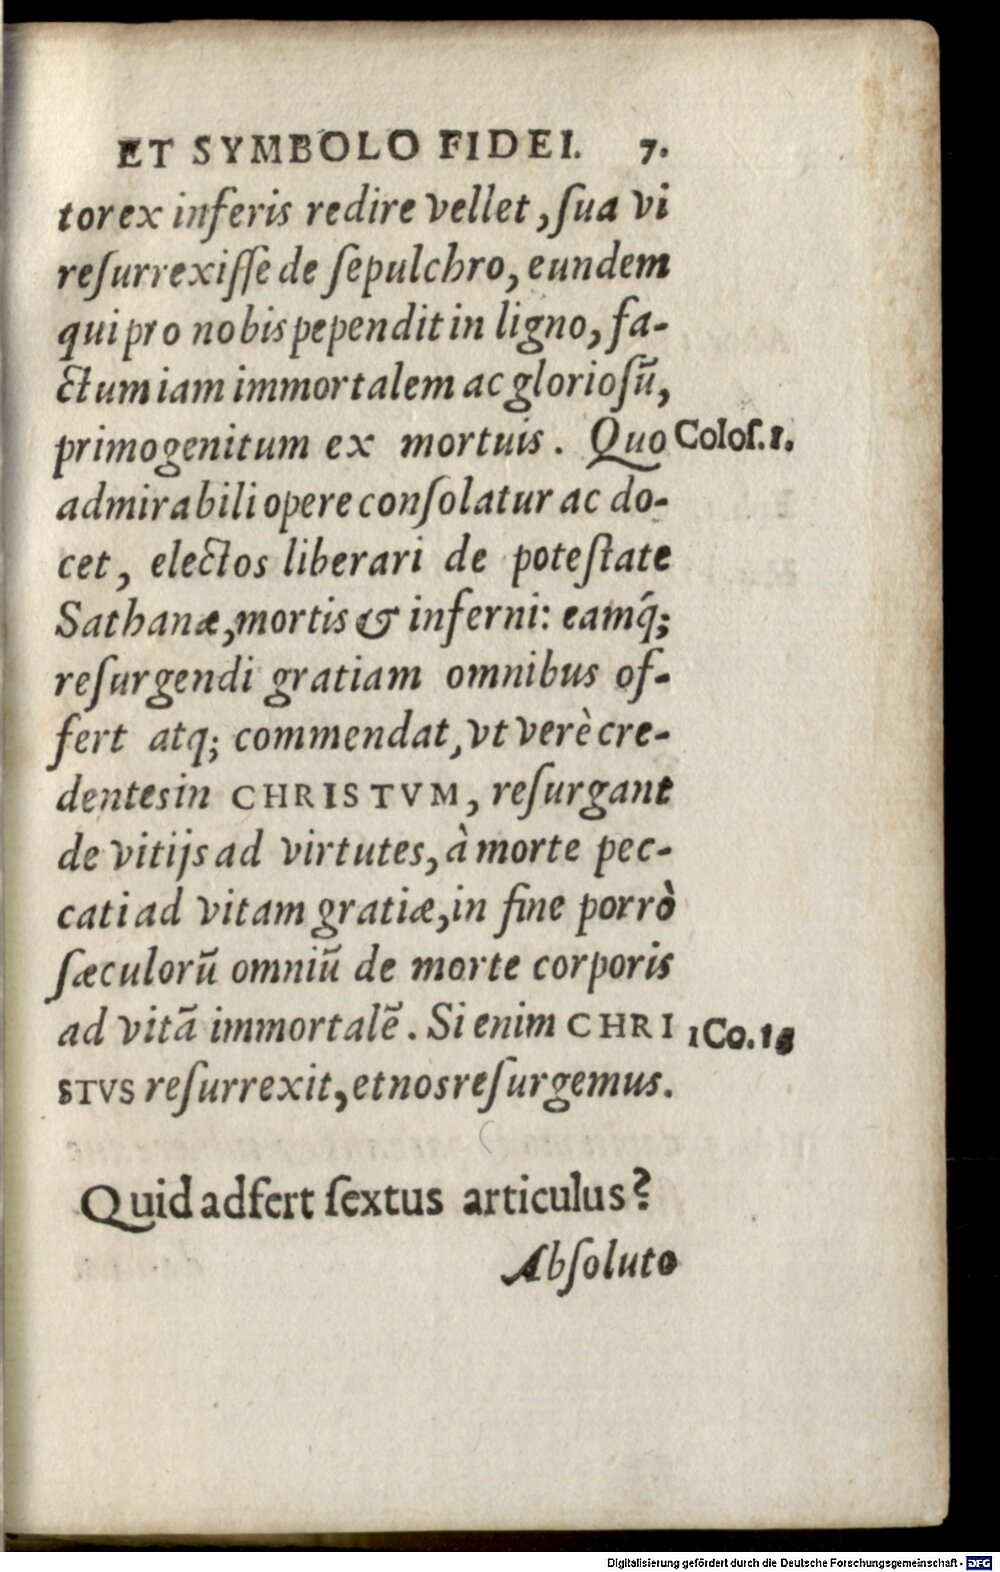 ET SYMBOLO FIDEI. 7.
tor ex inferis redire vellet, ſua vi
reſurrexiſſe de ſepulchro, eundem
qui pro nobis pependit in ligno, fa-
ctum iam immortalem ac glorioſũ,
primogenitum ex mortuis. Quo Coloſ.1.
admirabili opere conſolatur ac do-
cet, electos liberari de poteſtate
Sathanæ, mortis & inferni: eamq́;
reſurgendi gratiam omnibus of-
fert atq; commendat, vt verè cre-
dentes in CHRISTVM, reſurgant
de vitijs ad virtutes, à morte pec-
cati ad vitam gratiæ, in fine porrò
ſæculorũ omniũ de morte corporis
ad vitã immortalẽ. Si enim CHRI 1Co.15
STVS reſurrexit, et nos reſurgemus.
Quid adfert ſextus articulus?
Abſoluto
Digitalisierung gefördert durch die Deutsche Forschungsgemeinschaft - DFG